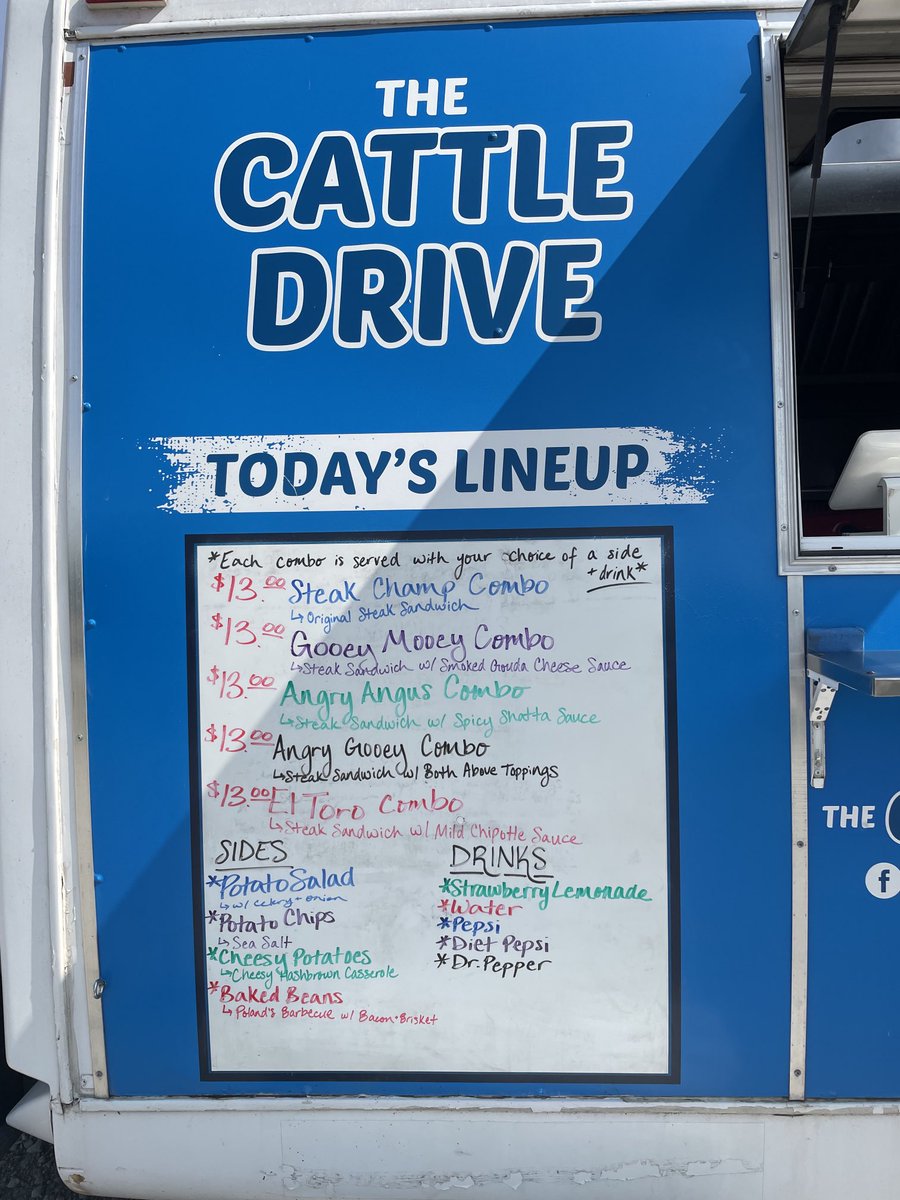 THE
CATTLE
DRIVE
TODAY'S LINEUP
*Each combo is served with your choice of a side
+ drink*
$13.00 Steak Champ Combo
↳Original Steak Sandwich
$13.00 Gooey Mooey Combo
↳Steak Sandwich w/ Smoked Gouda Cheese Sauce
$13.00 Angry Angus Combo
↳Steak Sandwich w/ Spicy Shatta Sauce
$13.00 Angry Gooey Combo
↳Steak Sandwich w/ Both Above Toppings
$13.00 El Toro Combo
↳Steak Sandwich w/ Mild Chipotle Sauce
SIDES
*Potato Salad
↳w/ celery + onion
*Potato Chips
↳Sea Salt
*Cheesy Potatoes
↳Cheesy Hashbrown Casserole
*Baked Beans
↳Poland's Barbecue w/ Bacon+Brisket
DRINKS
*Strawberry Lemonade
*Water
*Pepsi
*Diet Pepsi
*Dr. Pepper
THE
f